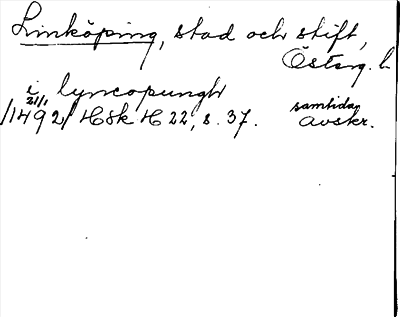 Linköping, stad och stift,
Österg. l.
i lyncopungh
21/1
/1492/ HSk H 22, s. 37. samtida
avskr.